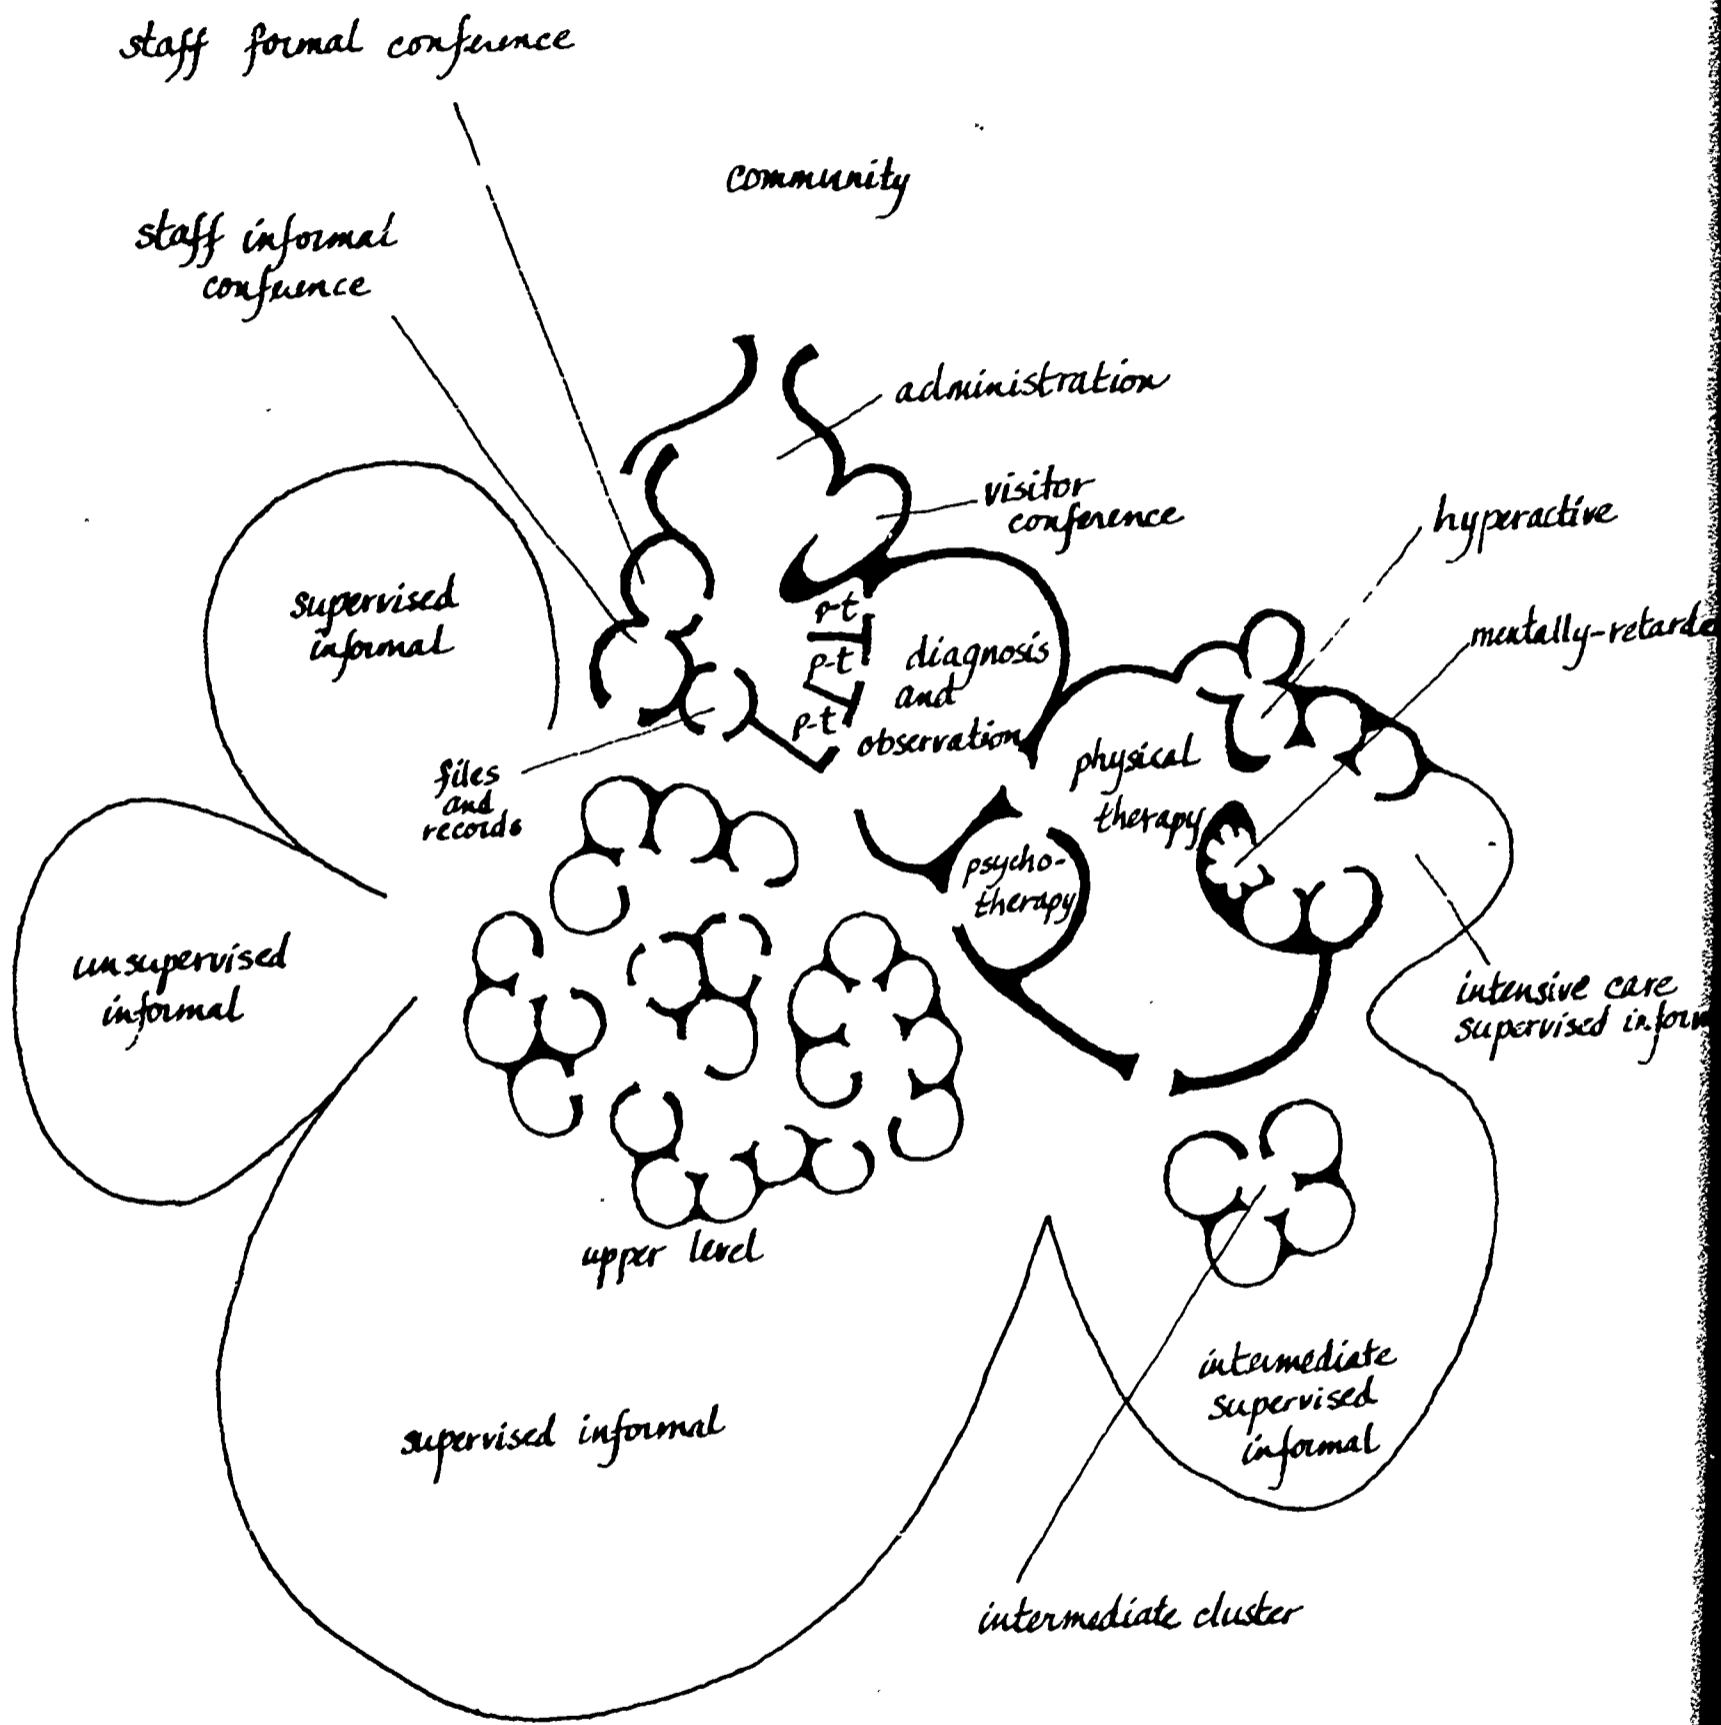 staff formal conference
community
staff informal
conference
administration
visitor
conference
hyperactive
supervised
informal
p-t
p-t
p-t
diagnosis
and
observation
mentally-retarde
files
and
records
physical
therapy
psycho-
therapy
unsupervised
informal
intensive care
supervised inform
upper level
intermediate
supervised
informal
supervised informal
intermediate cluster